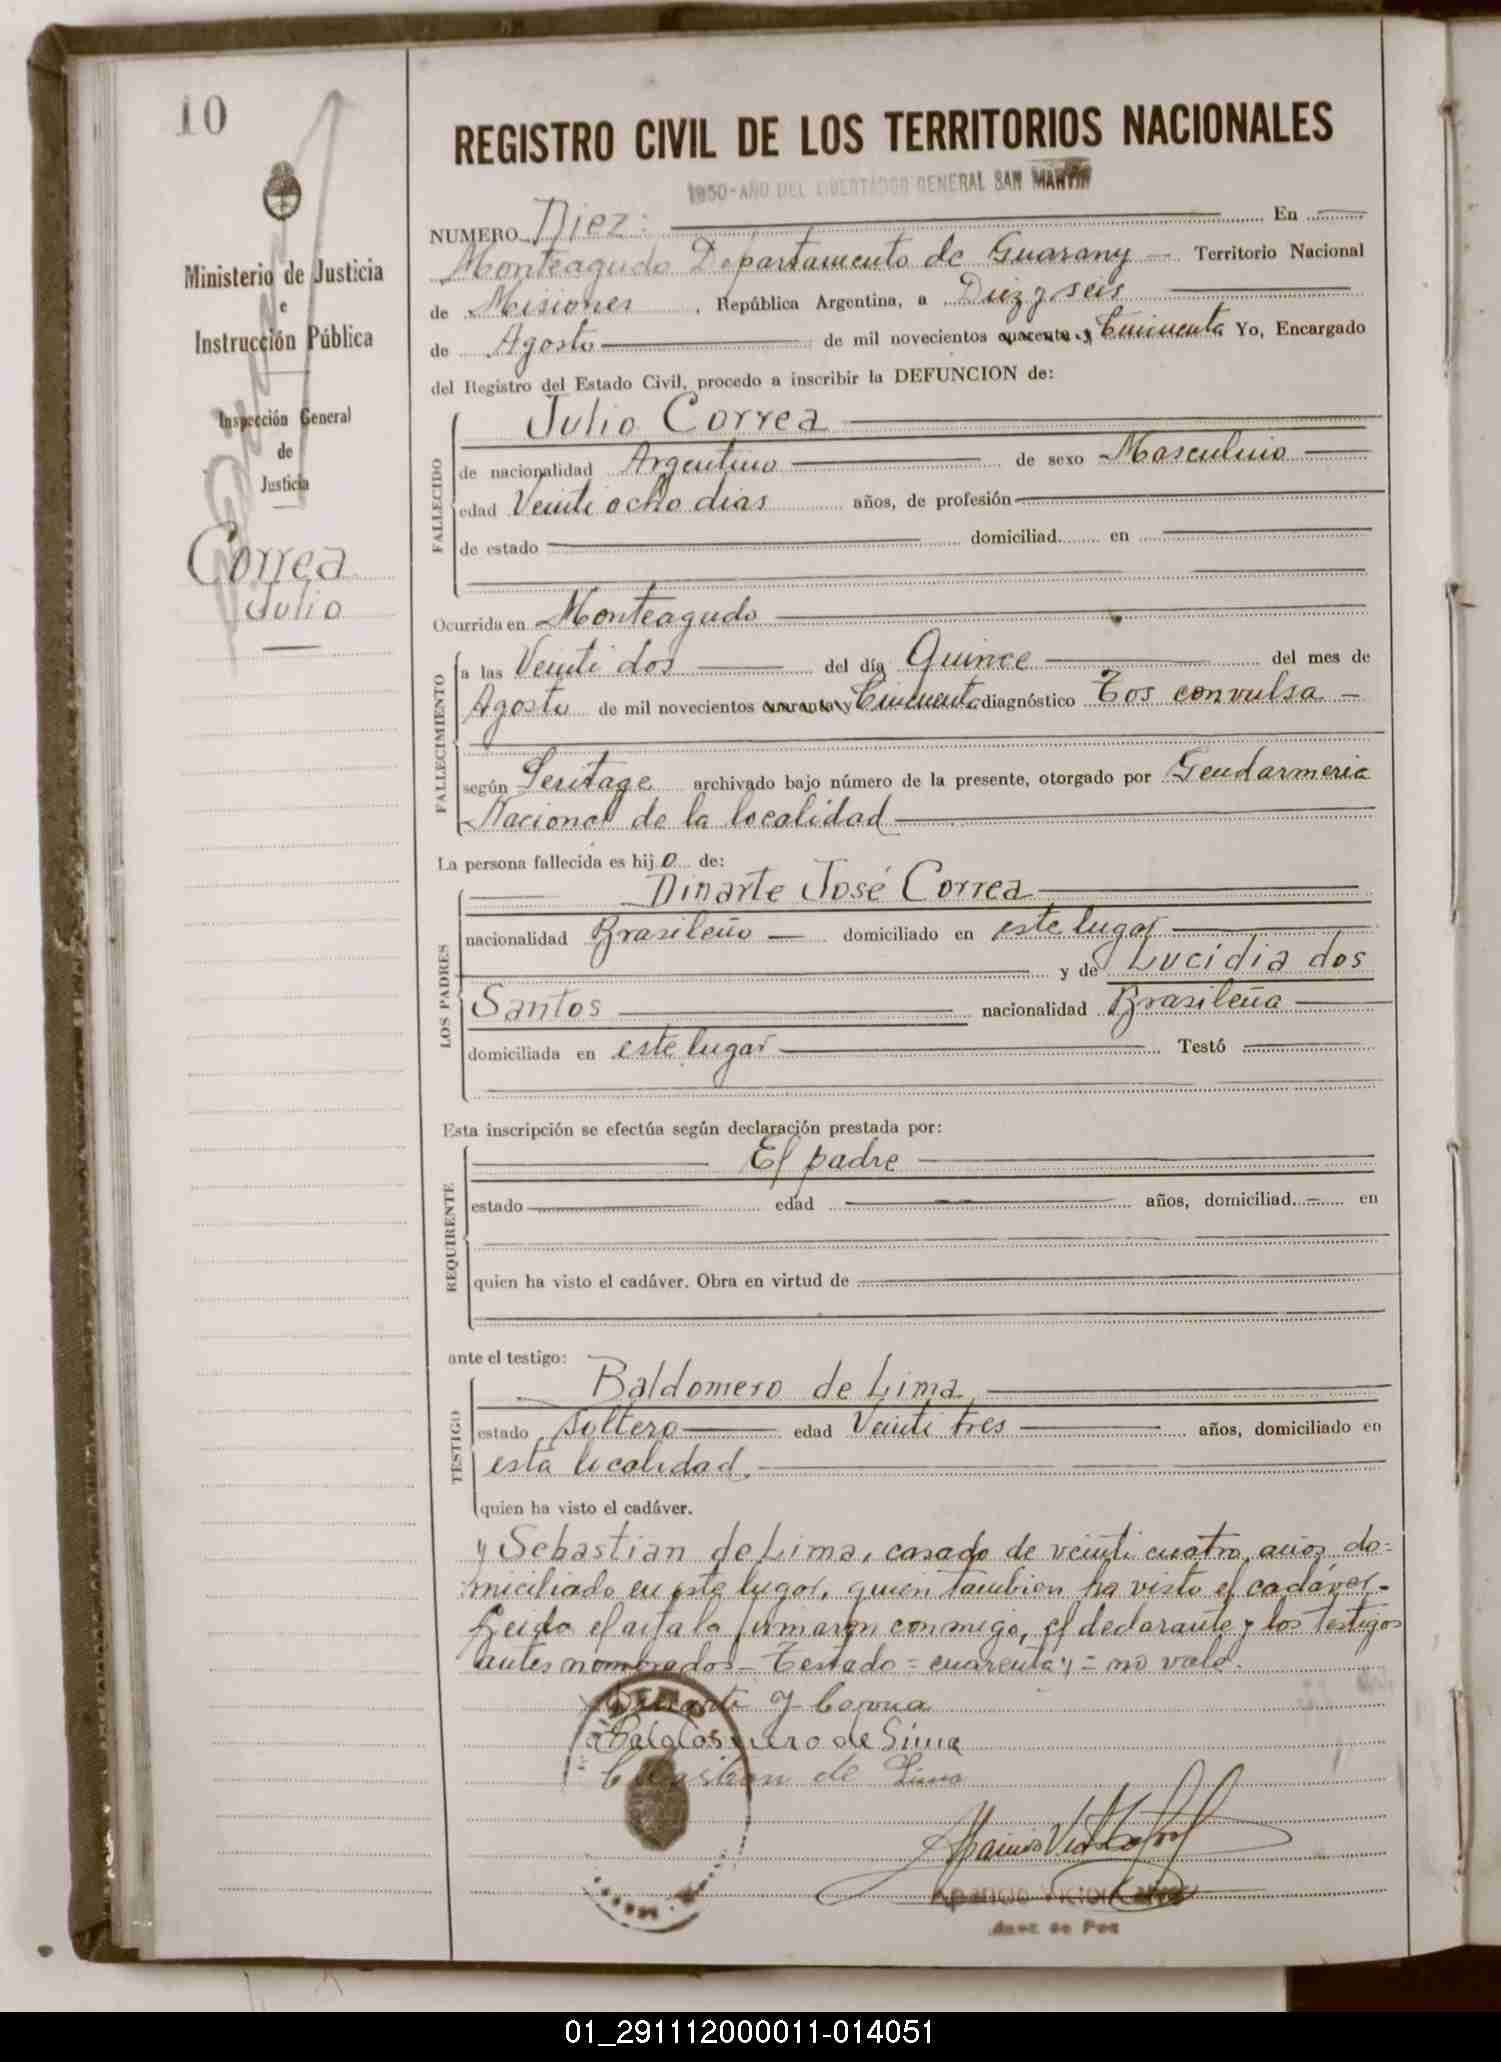 10
REGISTRO CIVIL DE LOS TERRITORIOS NACIONALES
1950-AÑO DEL LIBERTADOR GENERAL SAN MARTIN
Ministerio de Justicia
e
Instrucción Pública
Inspección General
de
Justicia
Correa
Julio
NUMERO Diez: En
Monteagudo Departamento de Guarany Territorio Nacional
de Misiones, República Argentina, a Diez y seis
de Agosto de mil novecientos cuarenta y Cincuenta Yo, Encargado
del Registro del Estado Civil, procedo a inscribir la DEFUNCION de:
FALLECIDO
Julio Correa
de nacionalidad Argentino de sexo Masculino
edad Veinti ocho dias años, de profesión
de estado domiciliad en
Ocurrida en Monteagudo
FALLECIMIENTO
a las Veinti dos del día Quince del mes de
Agosto de mil novecientos cuarenta y Cincuenta diagnóstico Tos convulsa
según Peritage archivado bajo número de la presente, otorgado por Gendarmeria
Nacional de la localidad
La persona fallecida es hijo de:
LOS PADRES
Dinarte José Correa
nacionalidad Brasileño domiciliado en este lugar
y de Lucidia dos
Santos nacionalidad Brasileña
domiciliada en este lugar Testó
Esta inscripción se efectúa según declaración prestada por:
REQUIRENTE
El padre
estado edad años, domiciliad en
quien ha visto el cadáver. Obra en virtud de
ante el testigo:
TESTIGO
Baldomero de Lima
estado soltero edad Veinti tres años, domiciliado en
esta localidad.
quien ha visto el cadáver.
y Sebastian de Lima, casado de veinti cuatro años, do=
miciliado en este lugar, quien tambien ha visto el cadáver.-
Leida el acta la firmaron conmigo, el declarante y los testigos
antes nombrados - Testado = cuarenta y = no vale.
Dinarte J Correa
Baldomero de Lima
Sebastian de Lima
Aparicio Victor
Juez de Paz
01_291112000011-014051